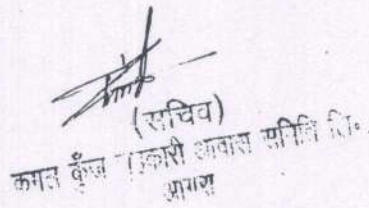 (सचिव)
कमल कुँज सहकारी आवास समिति लि॰
आगरा